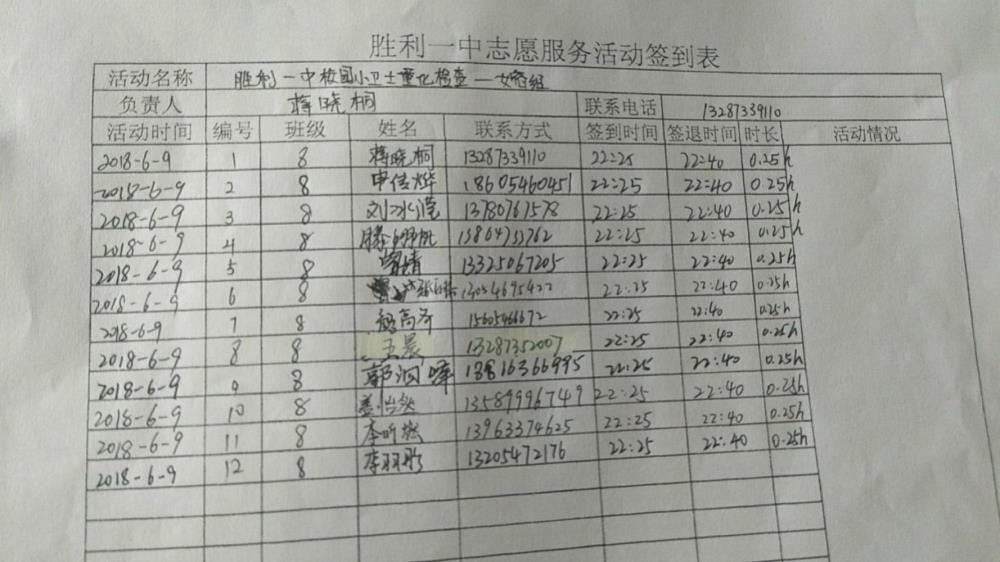 胜利一中志愿服务活动签到表
活动名称 胜利一中校园小卫士量化检查—女宿组
负责人 蒋晓桐 联系电话 13287339110
活动时间 编号 班级 姓名 联系方式 签到时间 签退时间 时长 活动情况
2018-6-9 1 8 蒋晓桐 13287339110 22:25 22:40 0.25h
2018-6-9 2 8 申佳烨 18605460451 22:25 22:40 0.25h
2018-6-9 3 8 刘冰滢 13780767578 22:25 22:40 0.25h
2018-6-9 4 8 22:25 22:40 0.25h
2018-6-9 5 8 婧 13325067205 22:25 22:40 0.25h
2018-6-9 6 8 22:25 22:40 0.25h
2018-6-9 7 8 15605466672 22:25 22:40 0.25h
2018-6-9 8 8 王晨 13287352007 22:25 22:40 0.25h
2018-6-9 9 8 22:25 22:40 0.25h
2018-6-9 10 8 姜怡然 13589996749 22:25 22:40 0.25h
2018-6-9 11 8 李昕燃 13963374625 22:25 22:40 0.25h
2018-6-9 12 8 李羽彤 13205472176 22:25 22:40 0.25h